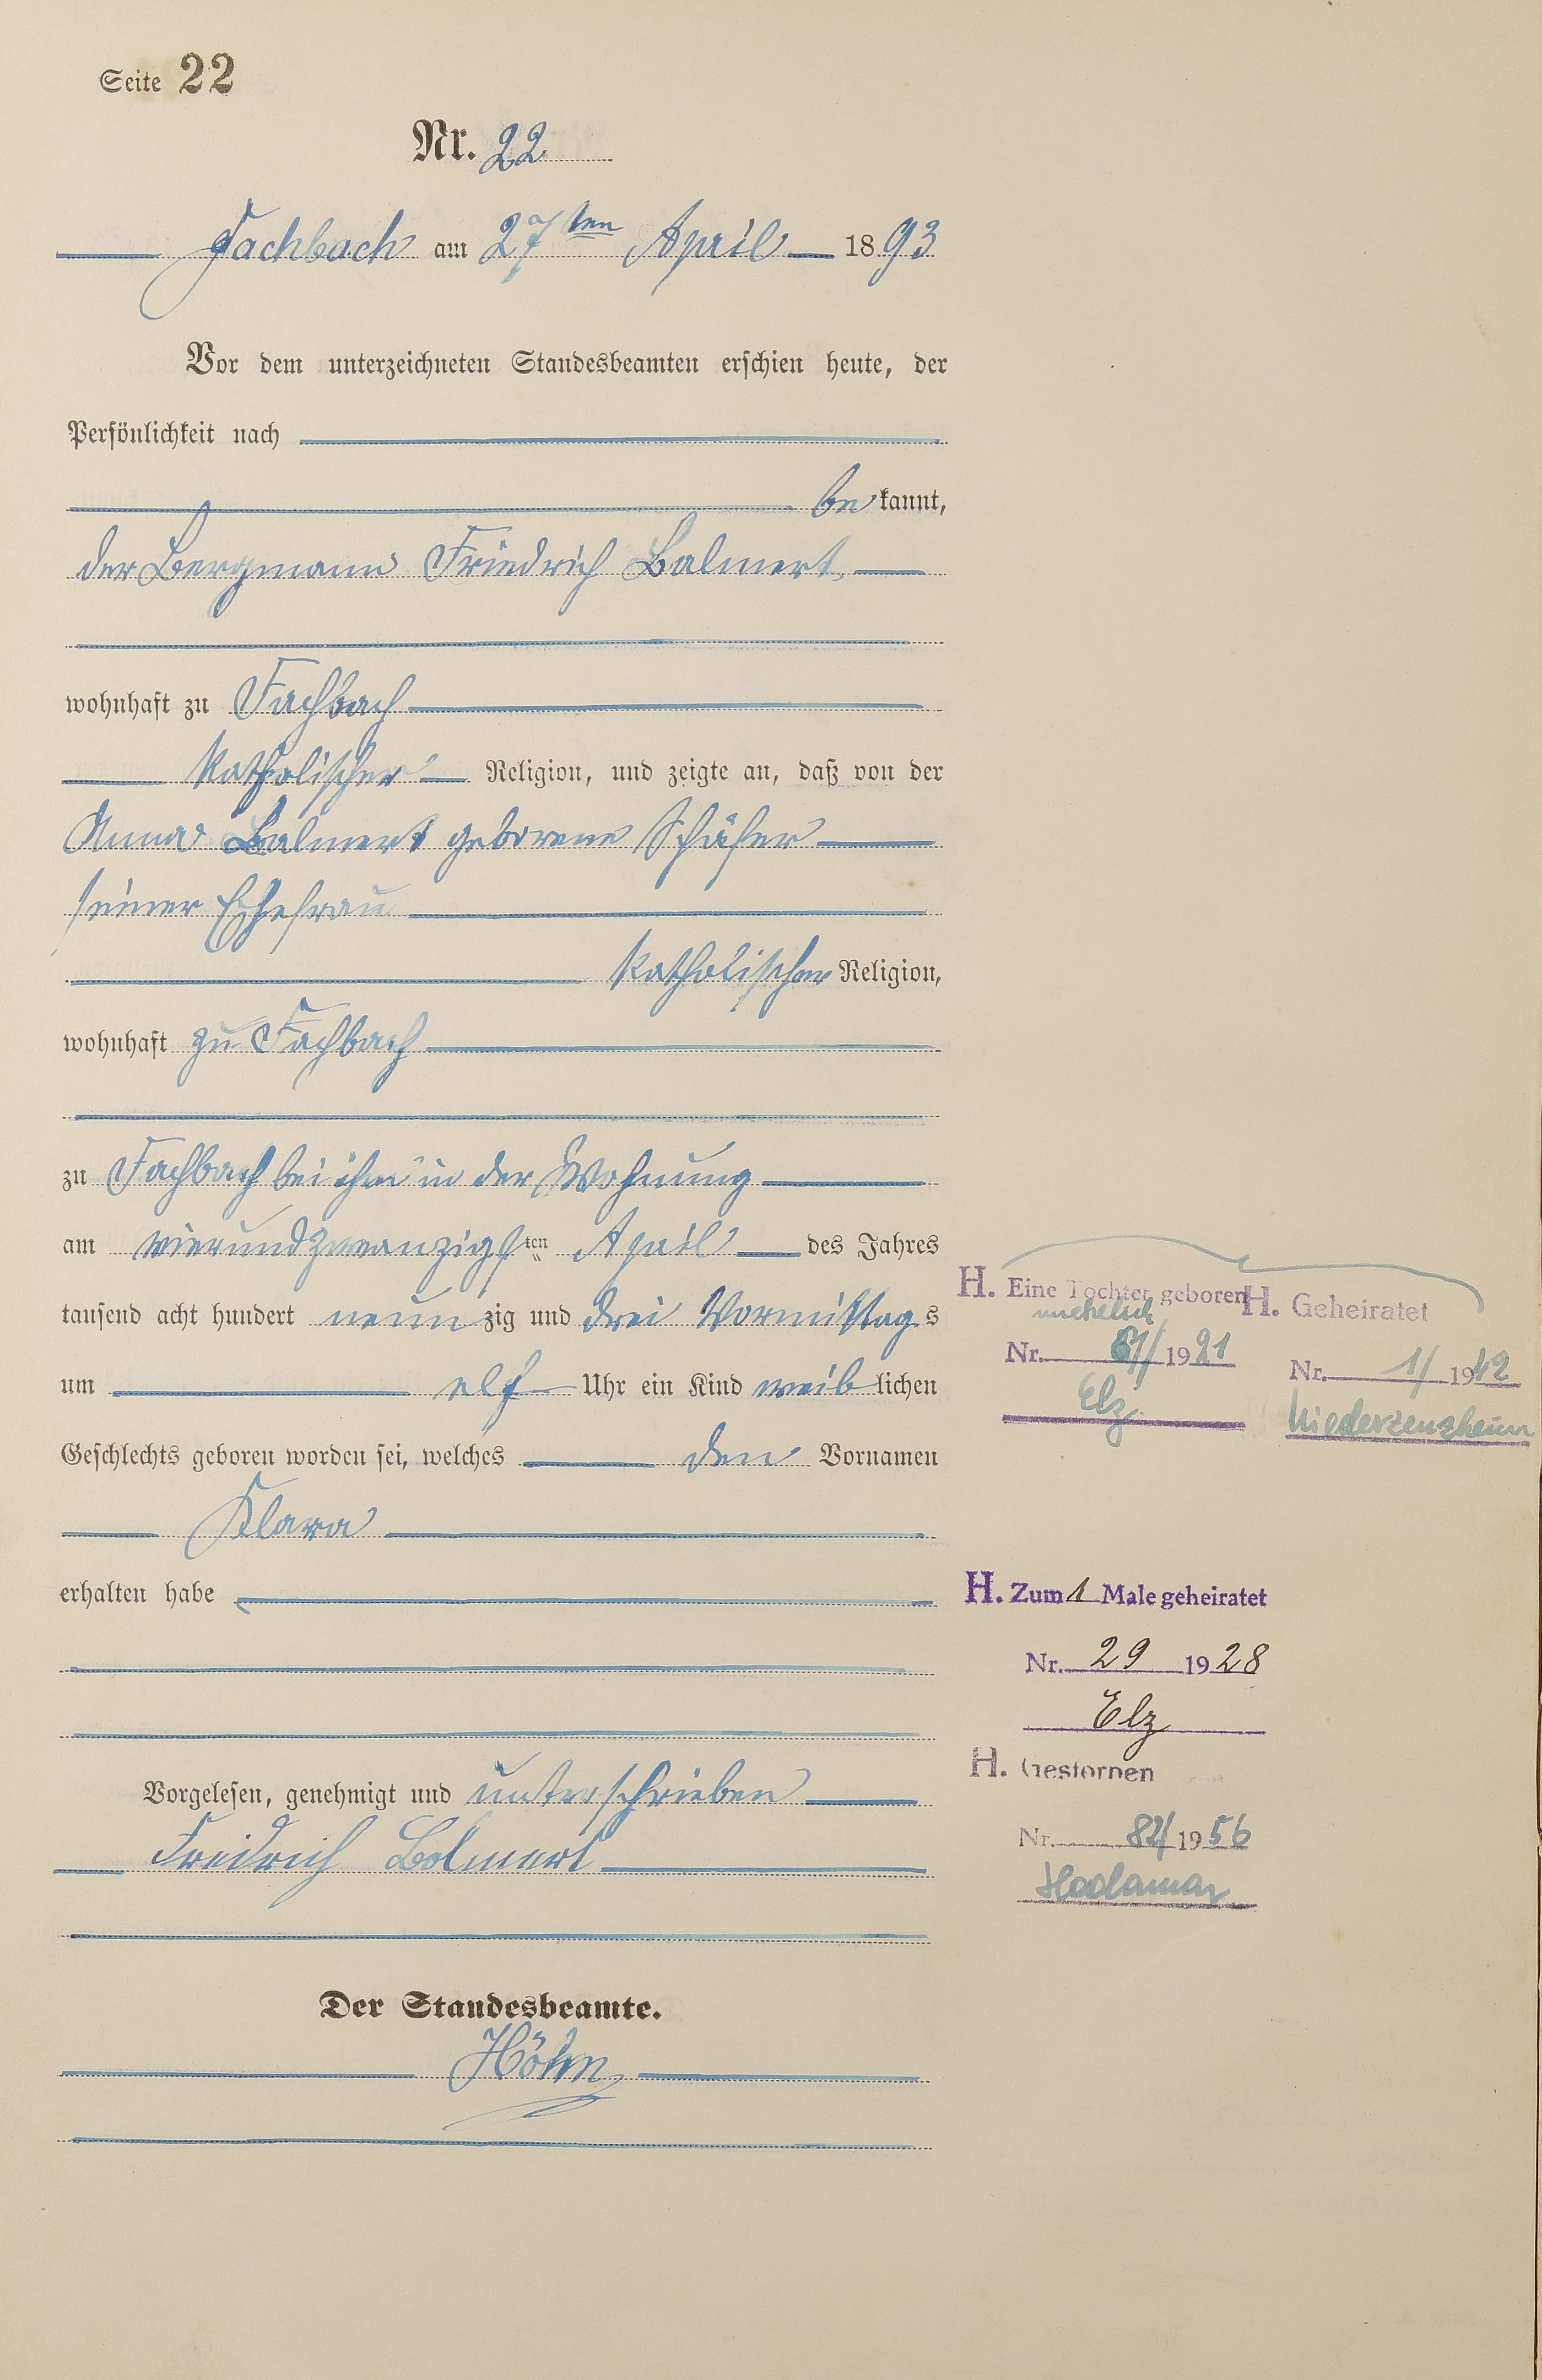 Seite 22
Nr. 22
Fachbach am 27ten April 1893
Vor dem unterzeichneten Standesbeamten erschien heute, der
Persönlichkeit nach
be kannt,
der Bergmann Friedrich Balmert
wohnhaft zu Fachbach
katholischer Religion, und zeigte an, daß von der
Anna Balmert geborene Schäfer
seiner Ehefrau
katholischer Religion,
wohnhaft zu Fachbach
zu Fachbach bei ihm in der Wohnung
am vierundzwanzigsten April des Jahres
tausend acht hundert neunzig und drei Vormittags
um elf Uhr ein Kind weiblichen
Geschlechts geboren worden sei, welches den Vornamen
Klara
erhalten habe
Vorgelesen, genehmigt und unterschrieben
Friedrich Balmert
Der Standesbeamte.
Höhn
H. Eine Tochter geboren
unehelich
Nr. 61/1921
Elz
H. Geheiratet
Nr. 1/1942
Niederzeuzheim
H. Zum 1 Male geheiratet
Nr. 29 1928
Elz
H. Gestorben
Nr. 82/1956
Hadamar